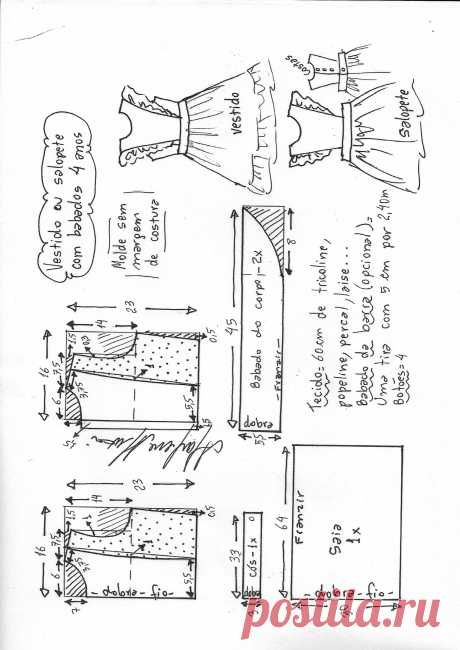 Vestido ou salopete
com babados 4 anos
Molde sem
margem
de costura
vestido
Costas
salopete
23
14
16
7,5
1,5
6
3,75
5,5
0,5
1,5
23
14
16
7,5
1,5
1
6
3,75
5,5
0,5
7
-dobra-fio-
45
Babado do corpo-2x
-Franzir-
dobra
5,5
8
33
cós-1x
64
Franzir
Saia
1x
-fio-
30
Tecido=60cm de tricoline,
popeline, percal, laise...
Babado da barra (opcional)=
Uma tira com 5 cm por 2,40m
Botões=4
postila.ru